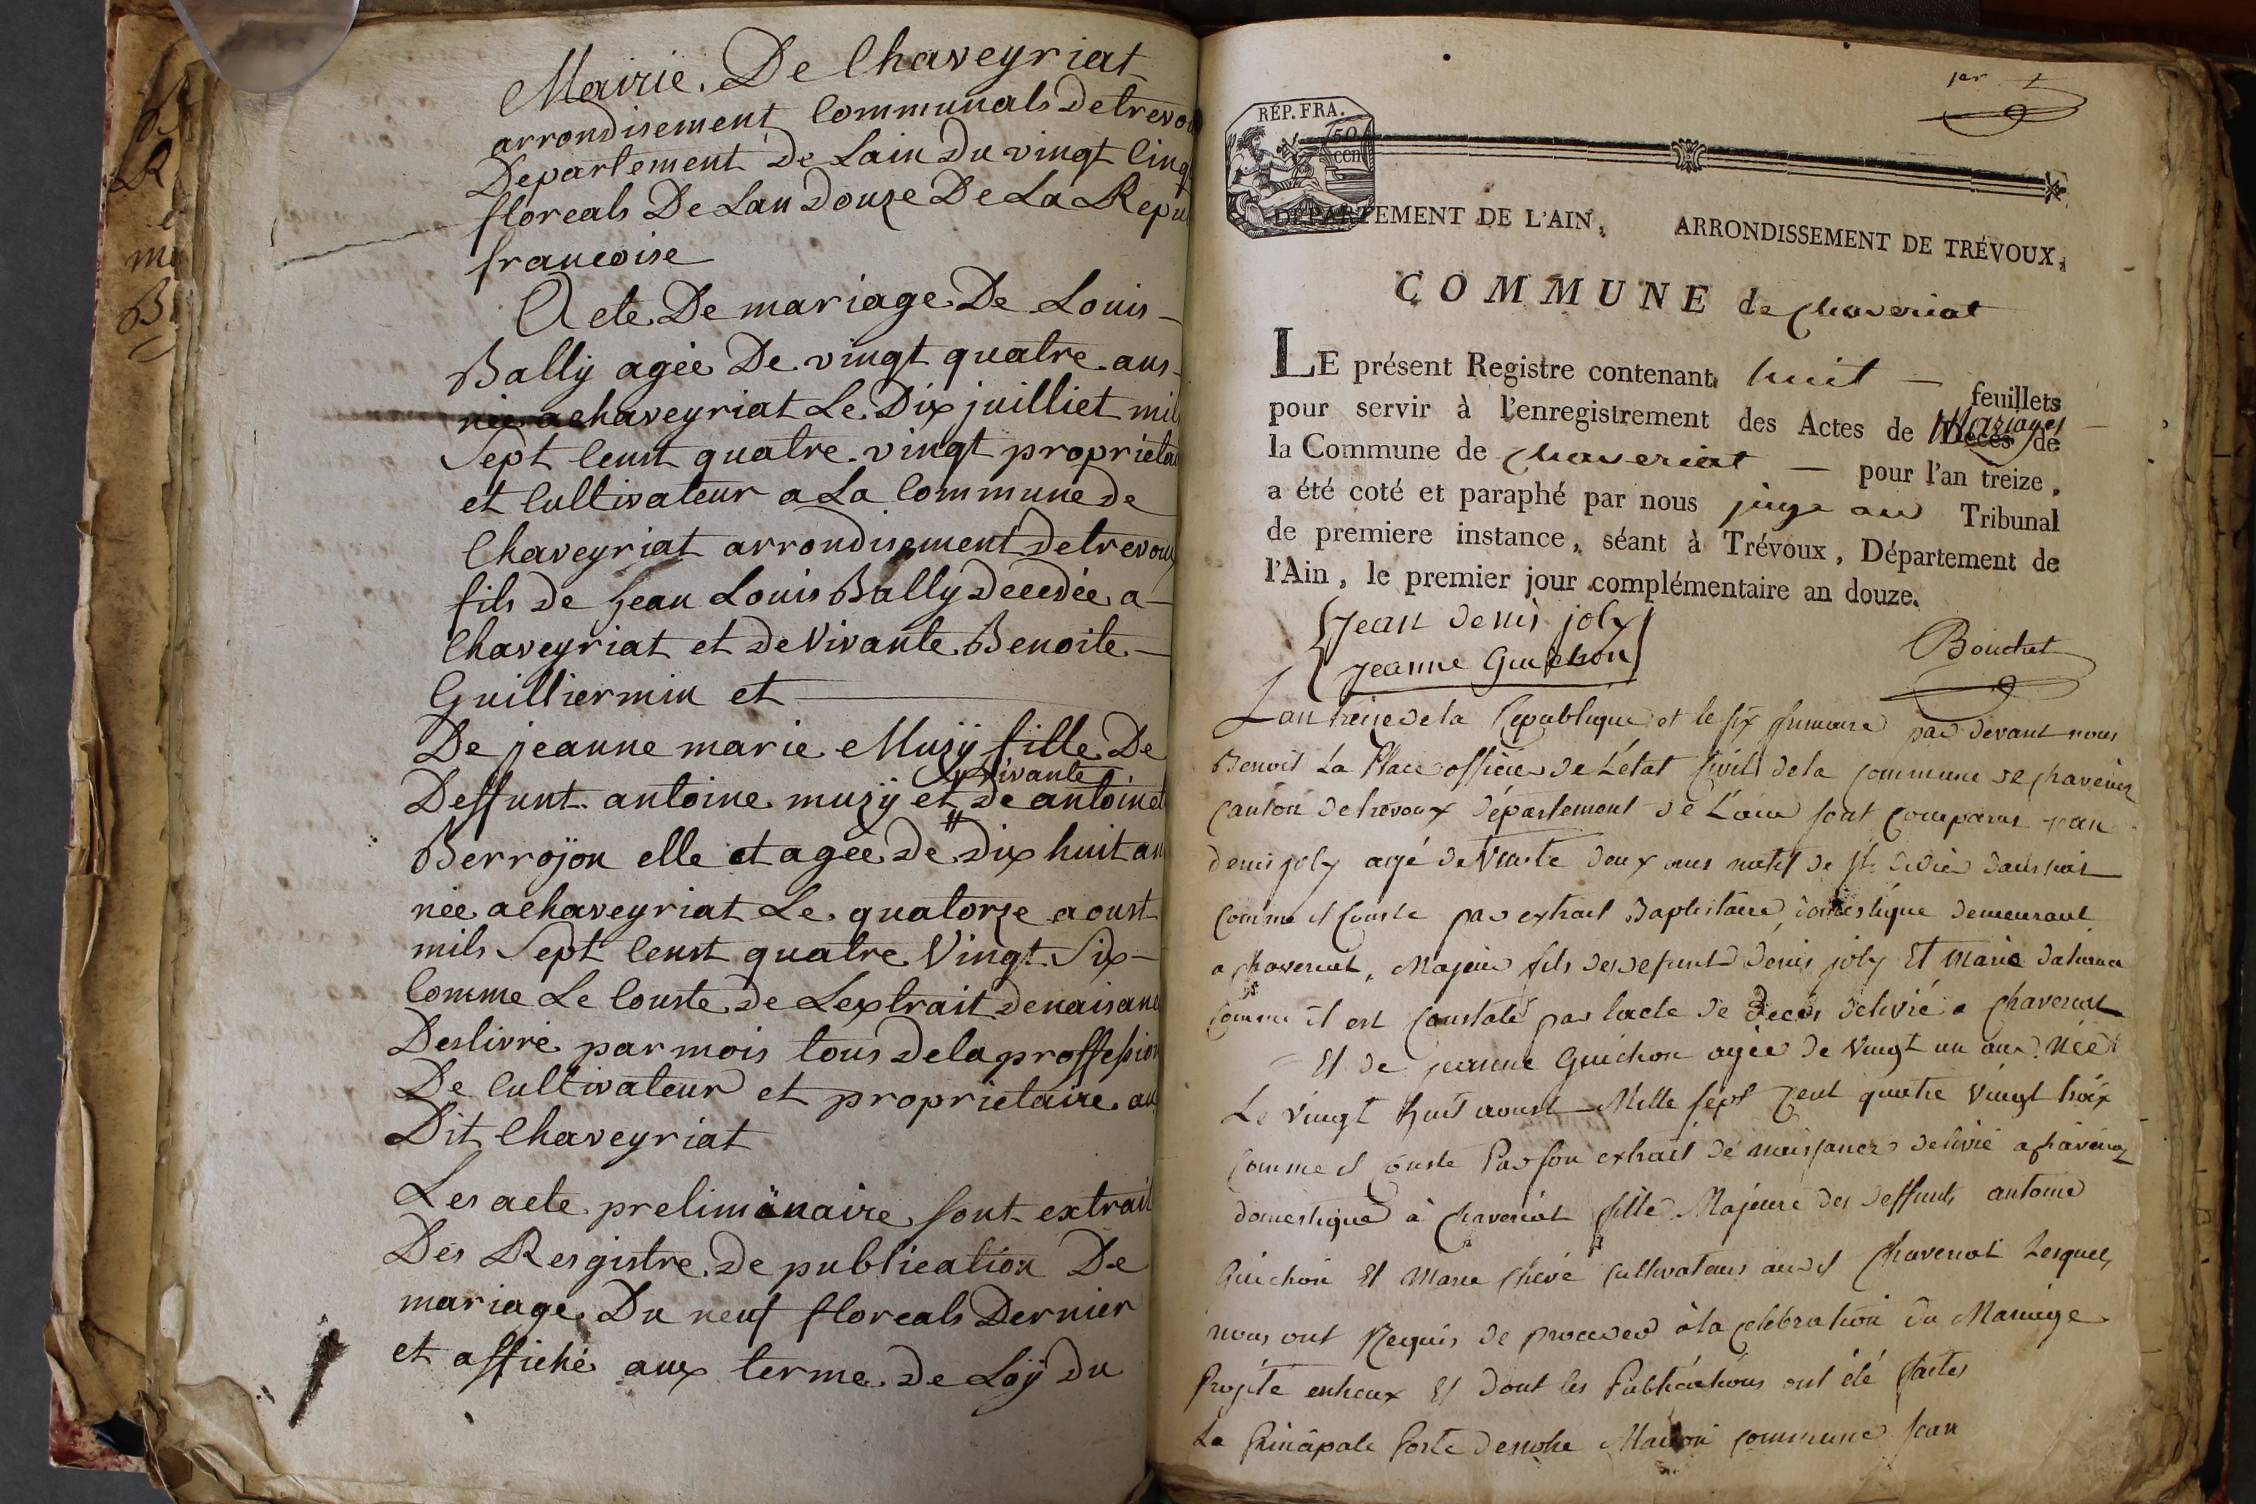 Mairie De Chaveyriat
arrondisement Communals de trevou
Departement de Lain Du vingt Cinq
floreals De Lan Douze De La Repu
francoise
Acte De mariage De Louis
Bally agée De vingt quatre ans
née a chaveyriat Le Dix juilliet mil
Sept Censt quatre vingt proprieta
et Cultivateur a La Commune de
Chaveyriat arrondisement De trevoux
fils de Jean Louis Bally Decedée a
Chaveyriat et de Vivante Benoite
Guilliermin et
De jeanne marie Muzÿ fille De
vivante
Deffunt antoine muzÿ et de antoinet
Berrojon elle et agée de Dix huit an
née a chaveyriat Le quatorze aoust
mils Sept Censt quatre Vingt Six
Comme Le Conste de Lextrait denaisanc
Deslivré par mois tous de la proffession
De Cultivateur et proprietaire au
Dit Chaveyriat
Les acte preliminaire sont extrait
Des Resgistre de publication De
mariage Du neuf floreals Dernier
et affiché aux terme de Loÿ du
1er
RÉP. FRA.
50
cen
DÉPARTEMENT DE L'AIN, ARRONDISSEMENT DE TRÉVOUX,
COMMUNE de chaveriat
LE présent Registre contenant huit feuillets
pour servir à l'enregistrement des Actes de Décès Mariages de
la Commune de chaveriat pour l'an treize,
a été coté et paraphé par nous juge au Tribunal
de premiere instance, séant à Trévoux, Département de
l'Ain, le premier jour complémentaire an douze.
Jean denis joly
Jeanne Guichon
Bouchet
Lan treize de la Republique et le six frimaire par devant nous
Benoit La Place officier de L'état Civil de la Commune de chaveriat
Canton de trevoux département de L'ain sont Comparus jean
denis joly agé de trente deux ans natif de St didier
Comme il Conste par extrait Baptistaire domestique demeurant
a chaveriat, Majeur fils des defunts denis joly Et Marie
Comme il est Constaté par lacte de decès delivré a Chaveriat
Et de jeanne Guichon agée de Vingt un ans Née
Le Vingt huit aoust Mille sept Cent quatre Vingt trois
Comme il Conste Par son extrait de naissance delivré a chaveriat
domestique à Chaveriat fille Majeure des deffunts antoine
Guichon Et Marie chevé Cultivateurs audit Chaveriat Lesquels
nous ont Requis de proceder à la Celebration du Mariage
Projeté entreux Et dont les Publications ont été faites
La Principale Porte de notre Maison Commune